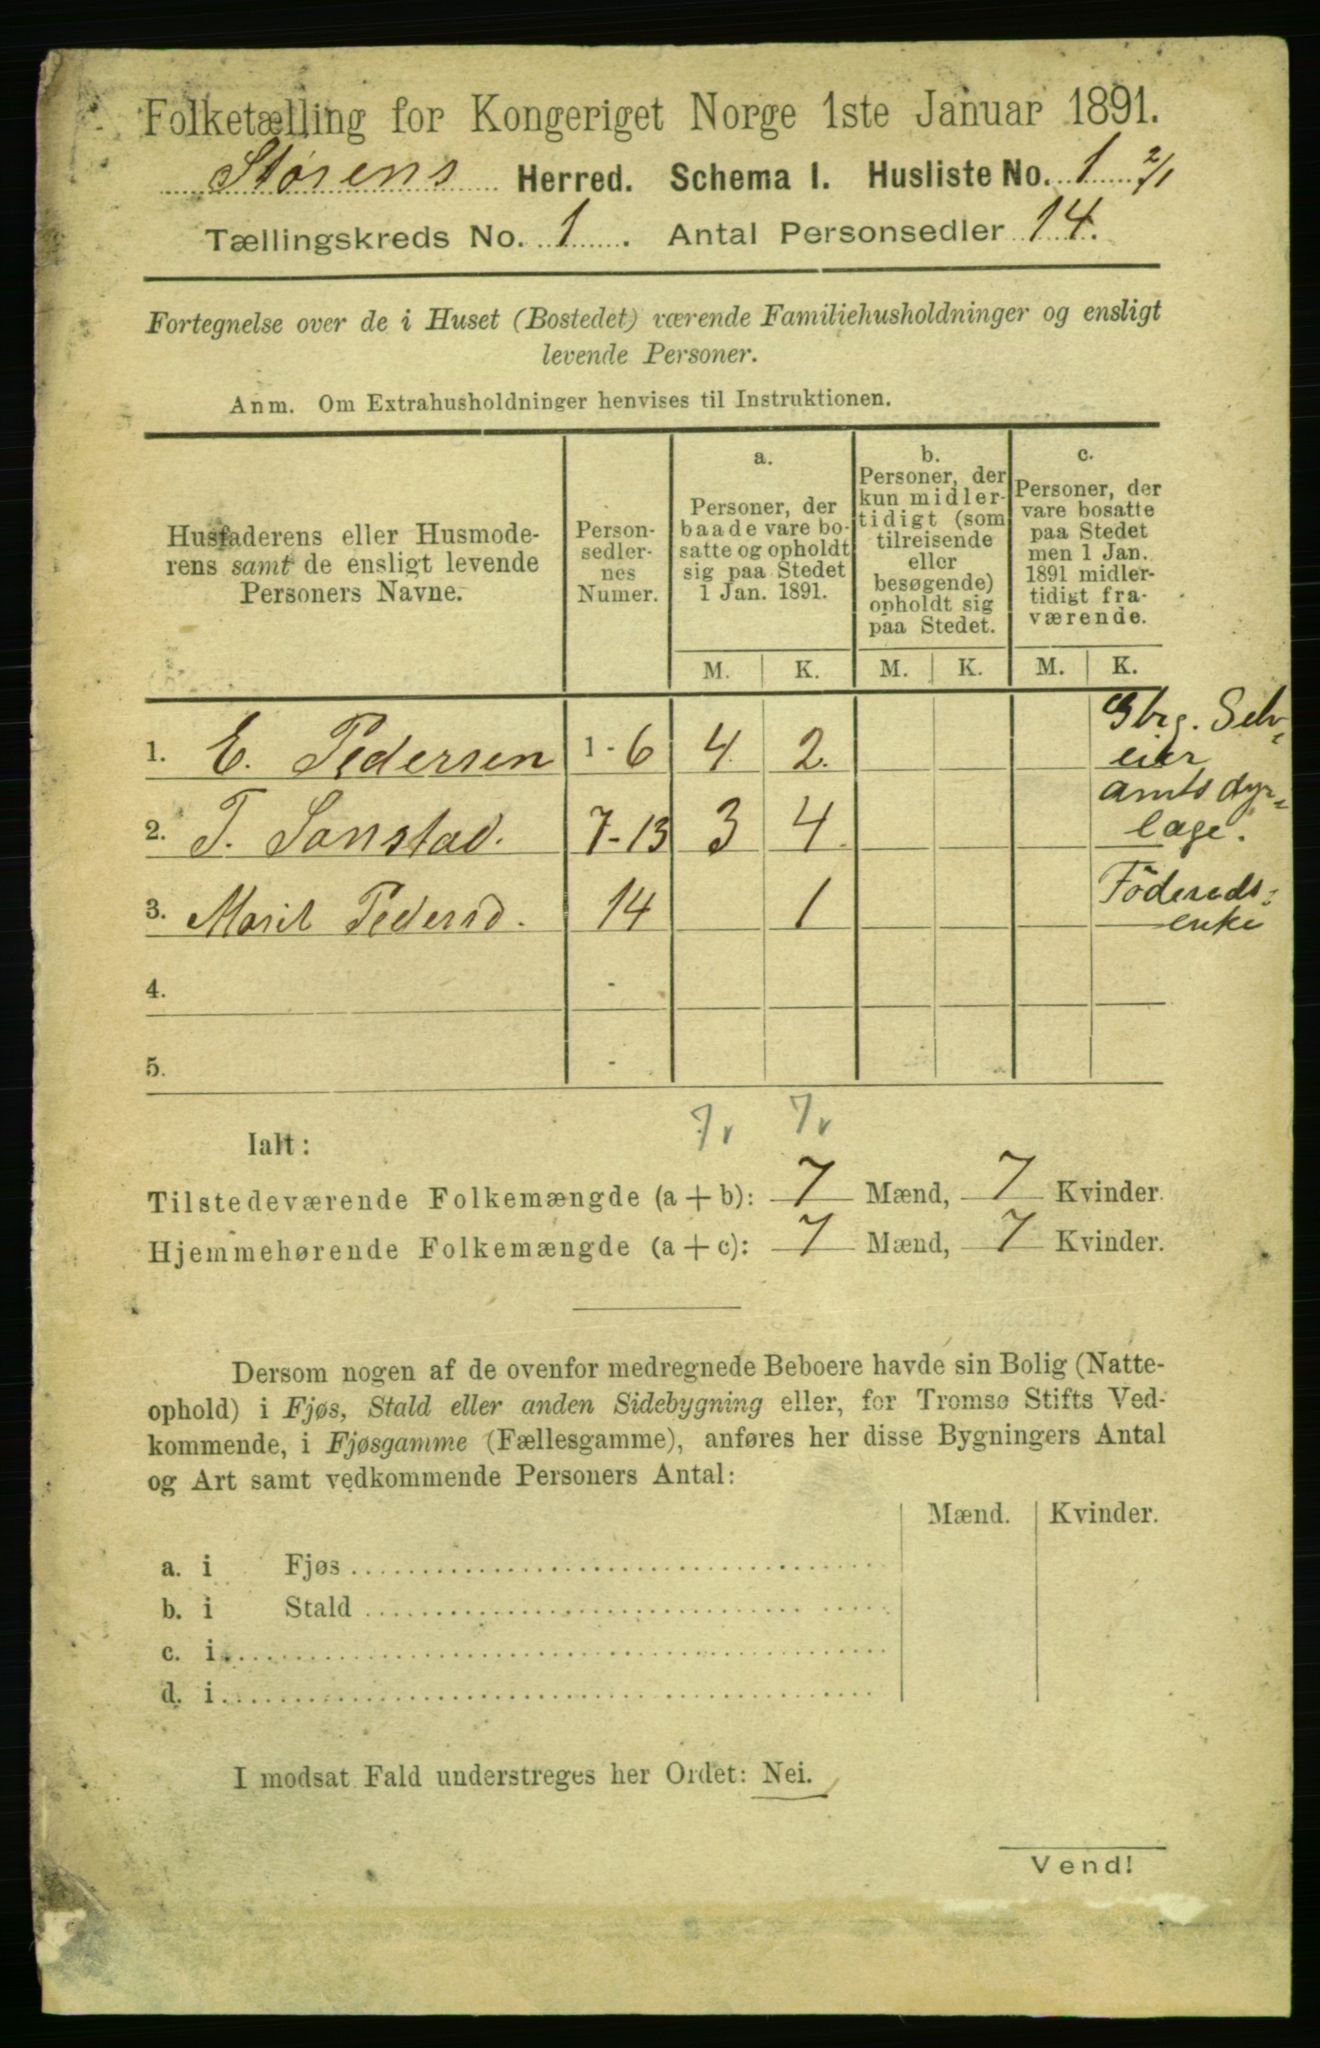 Folketælling for Kongeriget Norge 1ste Januar 1891.
Størens Herred. Schema 1. Husliste No. 1 2/1
Tællingskreds No. 1. Antal Personsedler 14.
Fortegnelse over de i Huset (Bostedet) værende Familiehusholdninger og ensligt
levende Personer.
Anm. Om Extrahusholdninger henvises til Instruktionen.
Husfaderens eller Husmode-
rens samt de ensligt levende
Personers Navne.
Person-
sedler-
nes
Numer.
a.
Personer, der
baade vare bo-
satte og opholdt
sig paa Stedet
1 Jan. 1891.
b.
Personer, der
kun midler-
tidigt (som
tilreisende
eller
besøgende)
opholdt sig
paa Stedet.
c.
Personer, der
vare bosatte
paa Stedet
men 1 Jan.
1891 midler-
tidigt fra-
værende.
M. K. M. K. M. K.
1. E. Pedersen 1 - 6 4. 2. Gbrg. Selv-
eier
2. T. Sanstad. 7-13 3 4 amtsdyr-
læge.
3. Marit Pedersd. 14 1 Föderåds-
enke
4. -
5. -
7v 7v
Ialt:
Tilstedeværende Folkemængde (a + b): 7 Mænd, 7 Kvinder.
Hjemmehørende Folkemængde (a + c): 7 Mænd, 7 Kvinder.
Dersom nogen af de ovenfor medregnede Beboere havde sin Bolig (Natte-
ophold) i Fjøs, Stald eller anden Sidebygning eller, for Tromsø Stifts Ved-
kommende, i Fjøsgamme (Fællesgamme), anføres her disse Bygningers Antal
og Art samt vedkommende Personers Antal:
Mænd. Kvinder.
a. i Fjøs
b. i Stald
c. i
d. i
I modsat Fald understreges her Ordet: Nei.
Vend!